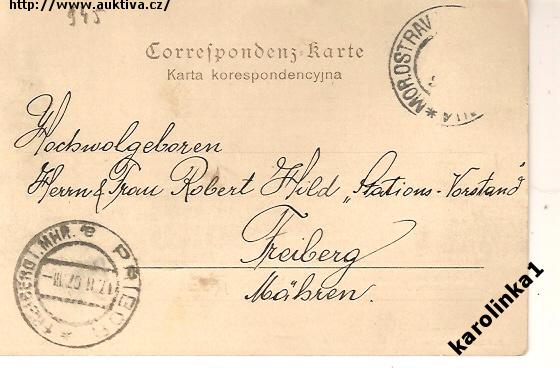 http://www.auktiva.cz/
945
Correspondenz-Karte
Karta korespondencyjna
MOR.OSTRAV
Hochwolgeboren
Herrn & Frau Robert Hild „Stations-Vorstand"
Freiberg
Mähren.
FREIBERG I. MHR.
karolinka1